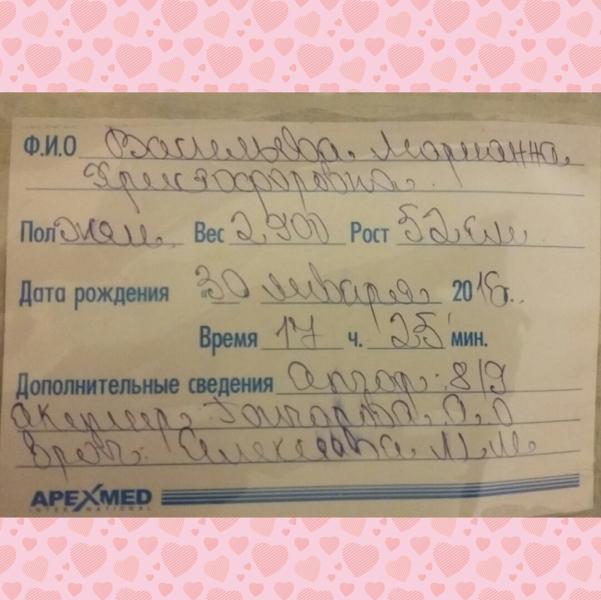 Ф.И.О Васильева Марианна
Христофоровна.
Пол жен. Вес 2,900 Рост 52 см
Дата рождения 30 января 2016г.
Время 17 ч. 25 мин.
Дополнительные сведения Апгар: 8/9
акушер: Гончарова О.О
Врач: Алексеева М.М.
APEXMED
INTERNATIONAL